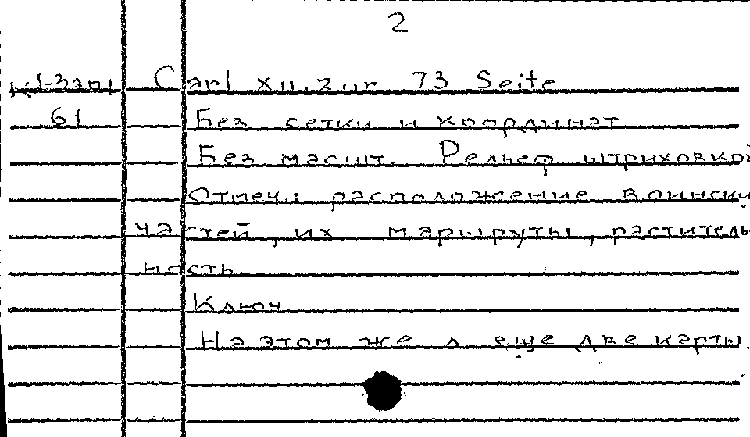 2
Carl XII. zur 73 Seite
61 Без сетки и координат
Без масшт. Рельеф штриховкой
Отмеч. расположение воински
частей, их маршруты, раститель
ность
Ключ
На этом же л еще две карты.